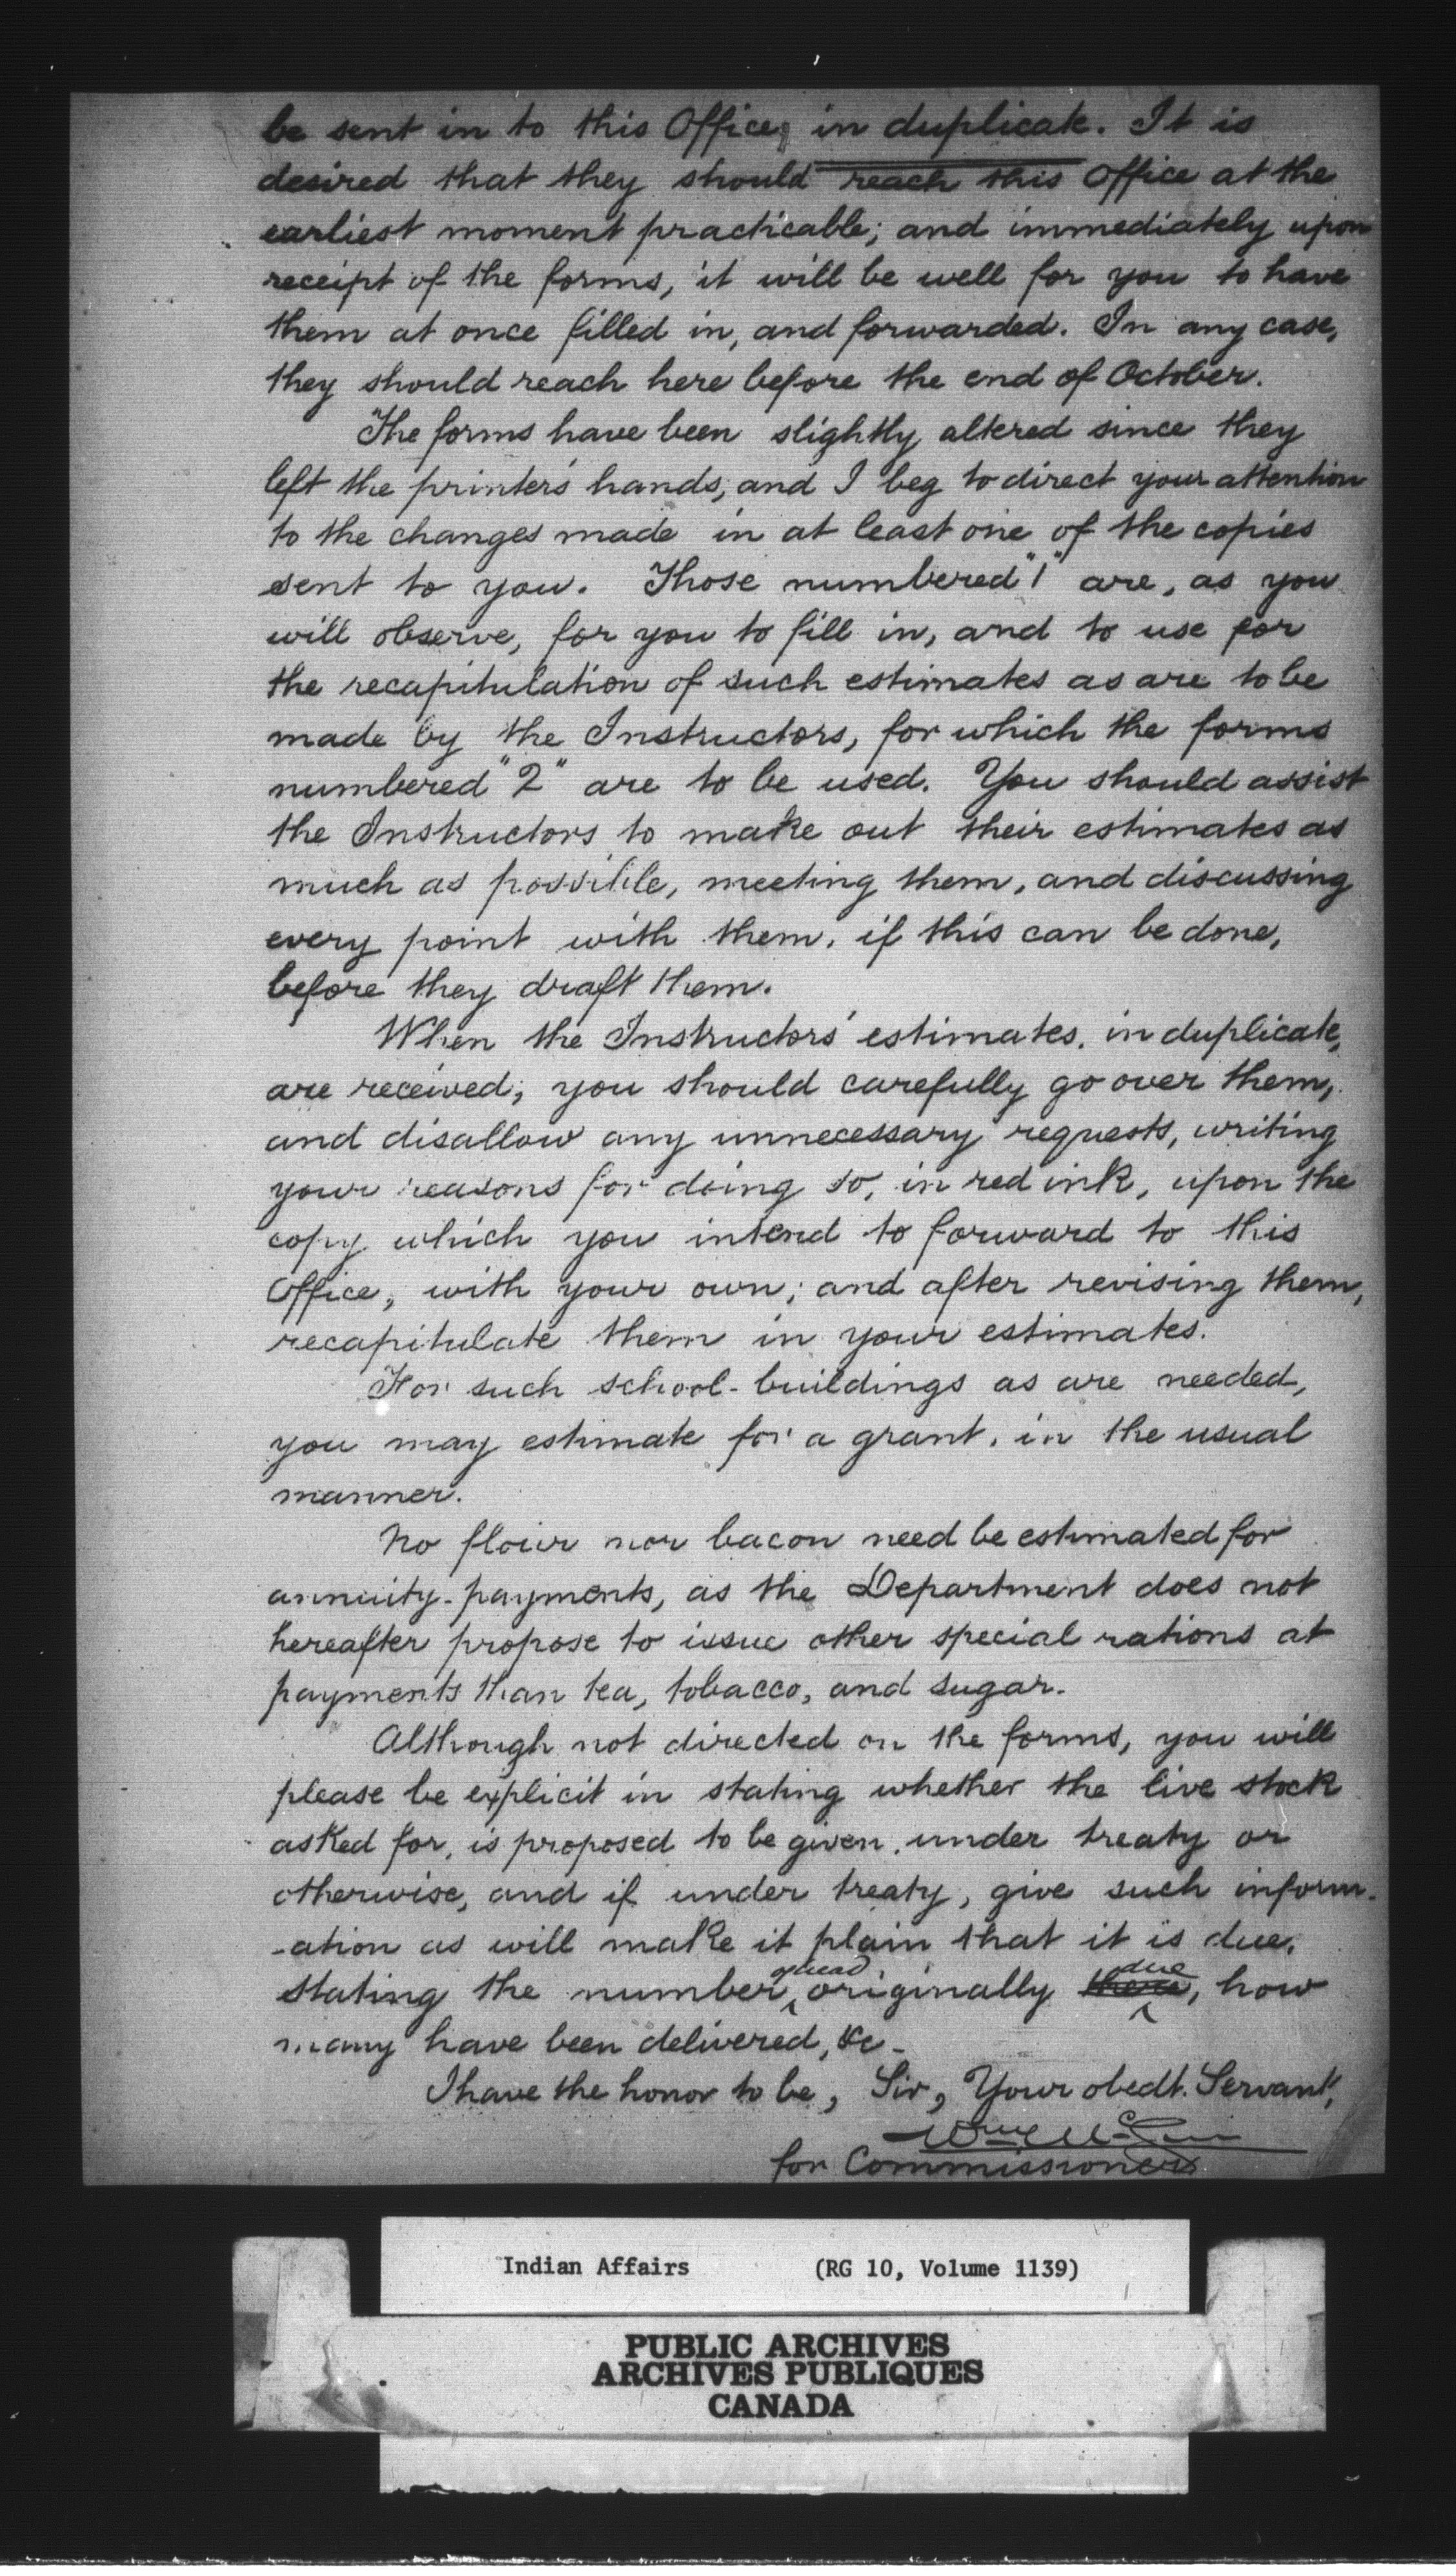 be sent in to this Office, in duplicate. It is
desired that they should reach this Office at the
earliest moment practicable; and immediately upon
receipt of the forms, it will be well for you to have
them at once filled in, and forwarded. In any case,
they should reach here before the end of October.
The forms have been slightly altered since they
left the printer's hands, and I beg to direct your attention
to the changes made in at least one of the copies
sent to you. Those numbered "1" are, as you
will observe, for you to fill in, and to use for
the recapitulation of such estimates as are to be
made by the Instructors, for which the forms
numbered "2" are to be used. You should assist
the Instructors to make out their estimates as
much as possible, meeting them, and discussing
every point with them, if this can be done,
before they draft them.
When the Instructors' estimates, in duplicate,
are received, you should carefully go over them,
and disallow any unnecessary requests, writing
your reasons for doing so, in red ink, upon the
copy which you intend to forward to this
Office, with your own; and after revising them,
recapitulate them in your estimates.
For such school-buildings as are needed,
you may estimate for a grant, in the usual
manner.
No flour nor bacon need be estimated for
annuity-payments, as the Department does not
hereafter propose to issue other special rations at
payments than tea, tobacco, and sugar.
Although not directed on the forms, you will
please be explicit in stating whether the live stock
asked for, is proposed to be given under treaty or
otherwise, and if under treaty, give such inform-
-ation as will make it plain that it is due,
stating the number, of head originally due, how
many have been delivered, &c-
I have the honor to be, Sir, Your obedt. Servant,
for Commissioner
Indian Affairs (RG 10, Volume 1139)
PUBLIC ARCHIVES
ARCHIVES PUBLIQUES
CANADA